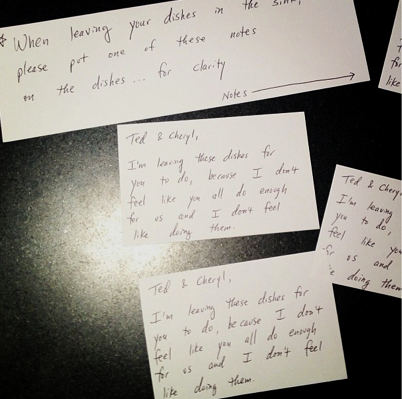 When leaving your dishes in the sink,
please put one of these notes
on the dishes... for clarity
Notes
Ted & Cheryl,
I'm leaving these dishes for
you to do, because I don't
feel like you all do enough
for us and I don't feel
like doing them.
Ted & Chery
I'm leaving
you to do,
feel like you
for us and
doing them
Ted & Cheryl,
I'm leaving these dishes for
you to do, because I don't
feel like you all do enough
for us and I don't feel
like doing them.
like